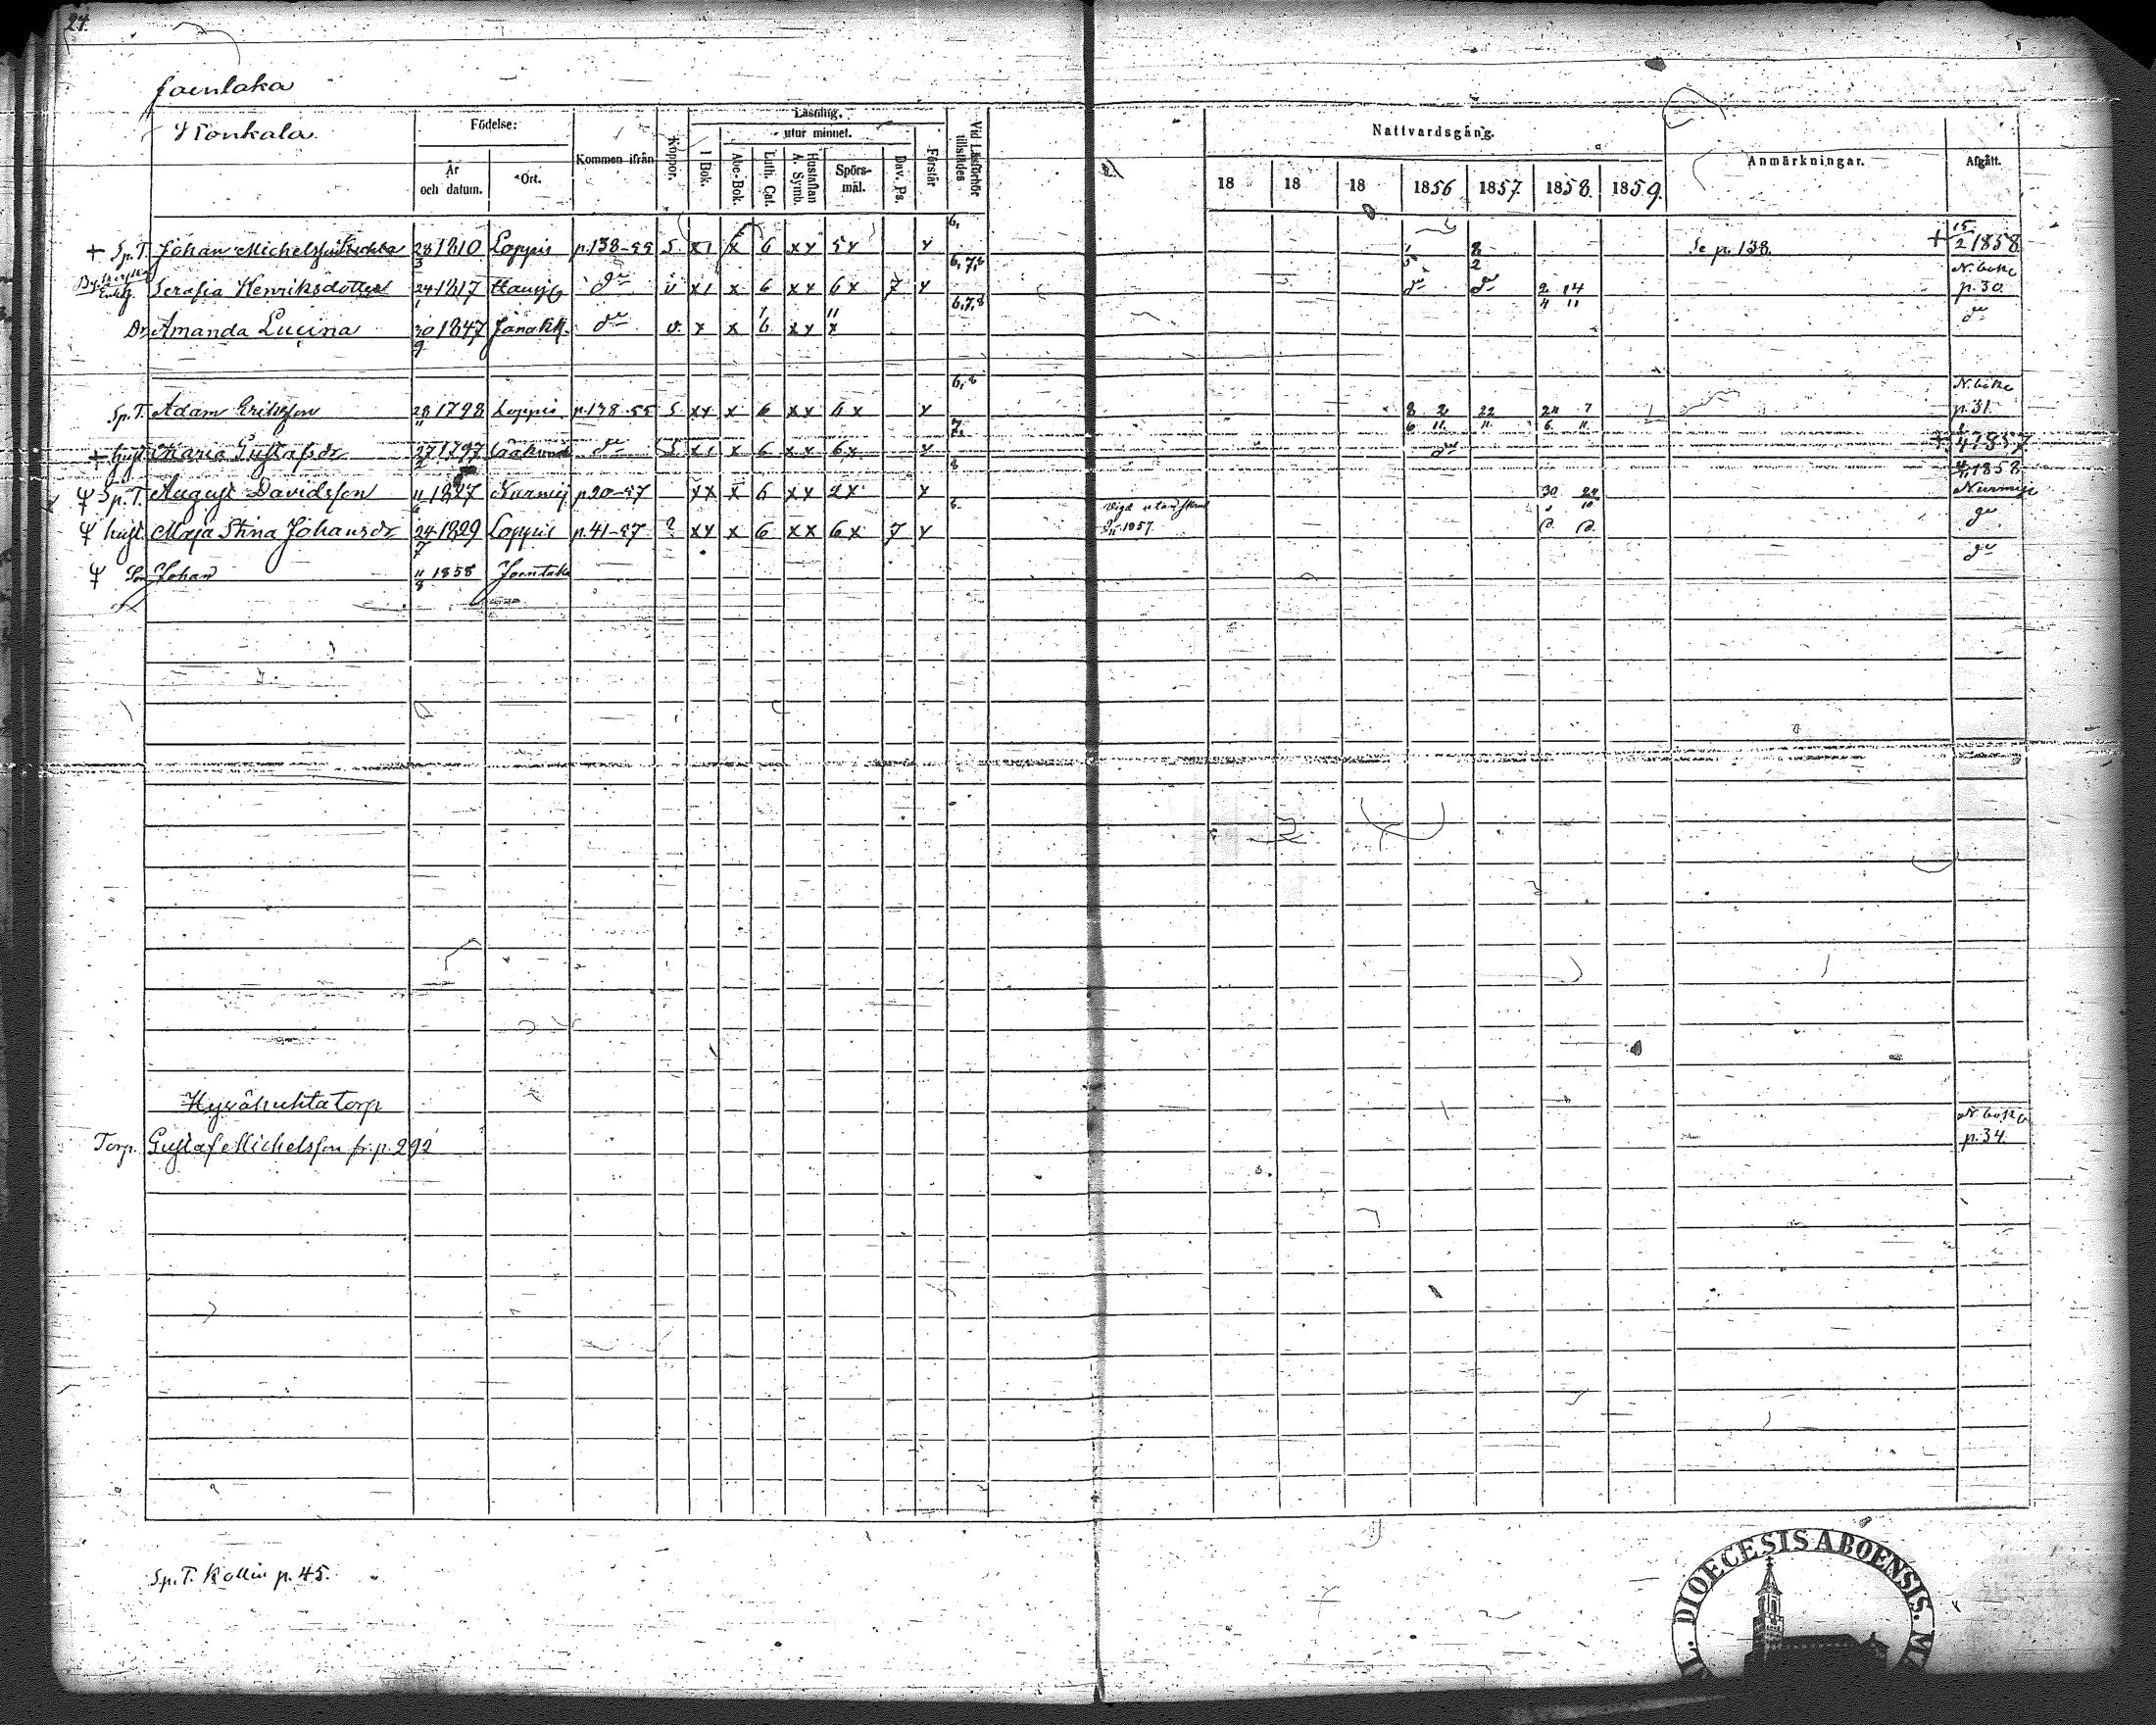 24.
Joentaka
Konkala.
Födelse:
År och datum.
Ort.
Kommen ifrån
Koppor.
Läsning.
I Bok.
utur minnet.
Abc-Bok.
Luth. Cat.
Hustaflan A. Symb.
Spörs-mål.
Dav. Ps.
Förstår
Vid Läsförhör tillstädes
Nattvardsgång.
18 18 18 1856 1857. 1858. 1859.
Anmärkningar.
Afgått.
+ Sp.T. Johan Michelsson 28/3 1810 Loppis p.138-55 S x1 x 6 xx 5x x 6, 1/5 8/2 Se p. 138. + 15/2 1858
Enk. Serafia Henriksdotter 24/1 1817 Hausj. do v x1 x 6 xx 6x 7 x 6,7,8 do do 2/4 14/11 N. boke p. 30.
Dr. Amanda Lucina 30/9 1847 Janakk. do v. x x 6 xx x 6,7,8 do
Sp.T. Adam Eriksson 28/11 1798 Loppis p.138-55 S xx x 6 xx 6x x 6,8 8/6 2/11 22/11 24/6 7/11 N. boke p.31.
+ hust. Maria Gustafsdr 27/2 1797 do S x1 x 6 xx 6x x 7. do + 1857
Sp.T. August Davidsson 1827 Nurmij p.20-57 xx x 6 xx 2x x 8 30 24/10 1858 Nurmij
hust. Maja Stina Johansdr 24/7 1829 Loppis p.41-57 ? xx x 6 xx 6x 7 x 8. 1857. do
Son Johan 11/8 1858 Joentaka do
Hyvähuhta torp
Torp. Gustaf Michelsson fr. p. 292 N. boke p. 34.
Sp.T. Kollin p. 45.
DIOECESIS ABOENSIS.